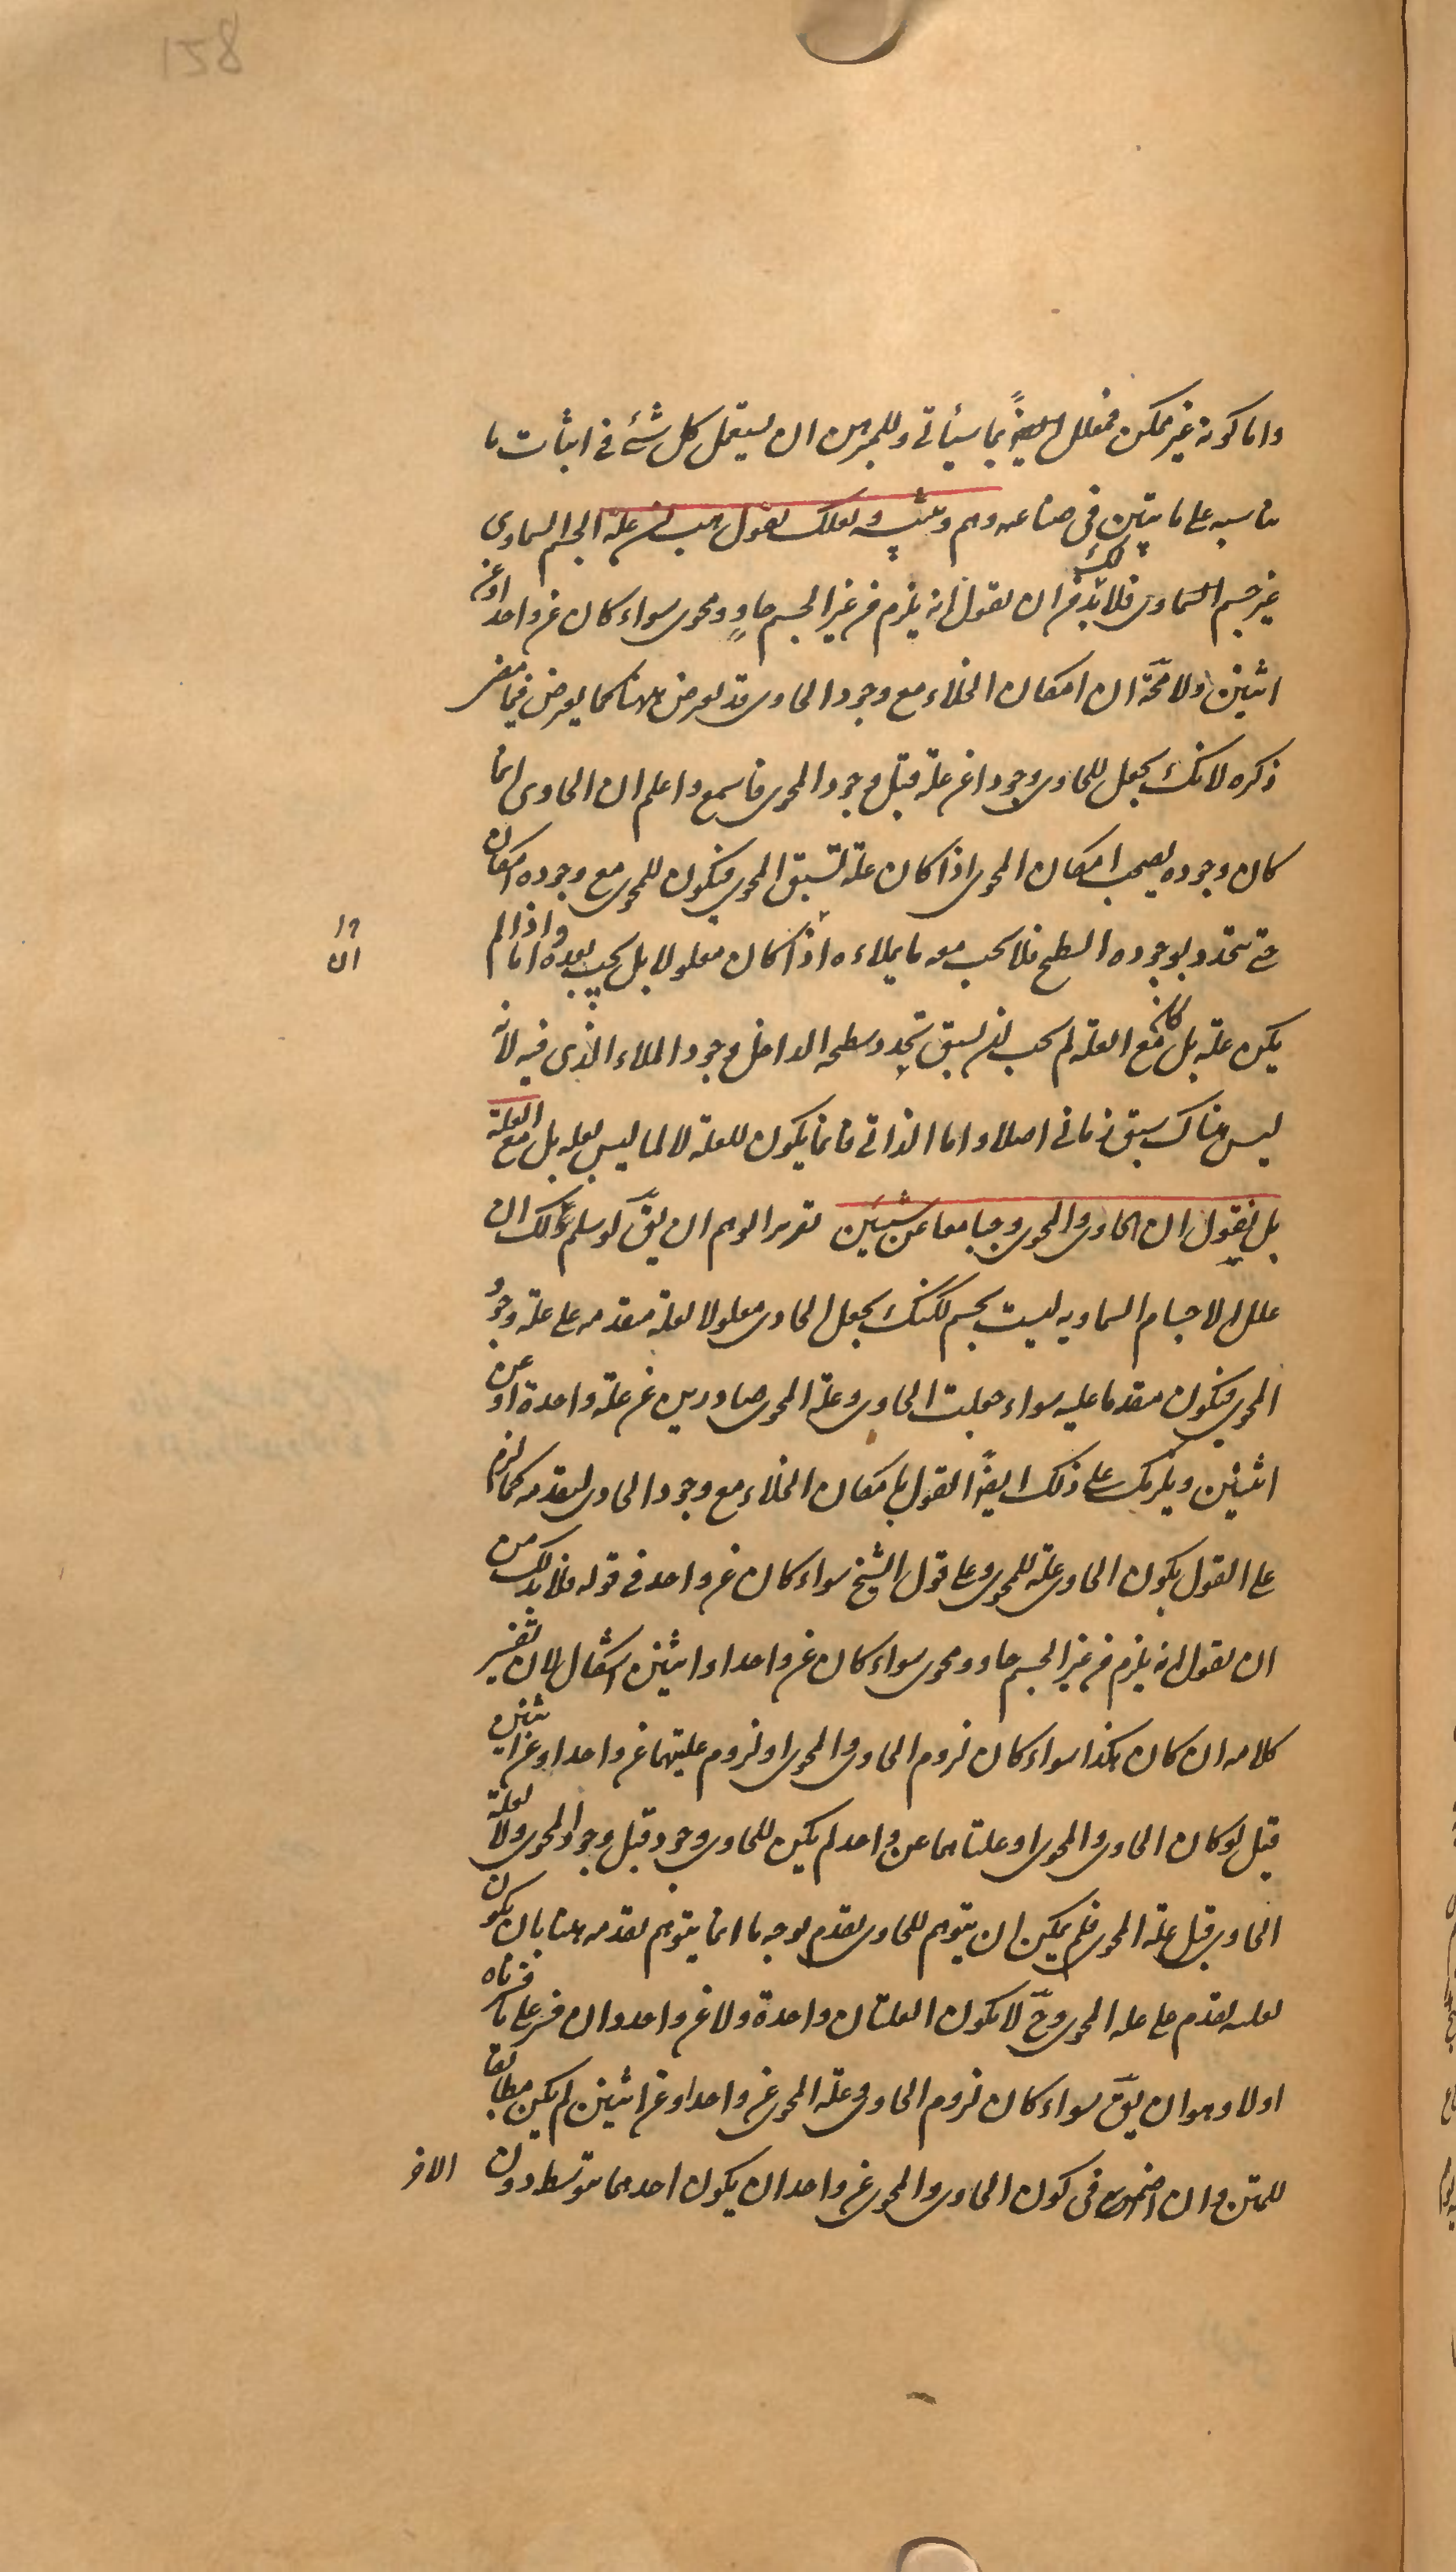 158
واما كونه غير ممكن فمعلل ايضاً بما سيأتى وللمبرهن ان يستعمل كل شئ فى اثبات ما
يناسبه على ما يتبين فى صناعه وهم وتنبيه ولعلك تقول هب ان علة الجسم السماوى
غير جسم السماوى فلا بد لك من ان تقول انه يلزم من غير الجسم حاوٍ ومحوى سواء كان عن واحد او عن
اثنين ولا محة ان امكان الخلاء مع وجود الحاوى قد يعرض هناك كما يعرض فيما مضى
ذكره لانك تجعل للحاوى وجودا عن علة قبل وجود المحوى فاسمع واعلم ان الحاوى انما
كان وجوده يصحب امكان المحوى اذا كان علة تسبق المحوى فيكون للمحوى مع وجوده امكان
حتى يتحدد بوجوده السطح فلا يجب معه ما يملاءه اذا كان معلولا بل يجب بعده اما واذا لم
وا
ان
يكن علة بل كان مع العلة لم يجب ان يسبق تحدد سطحه الداخل وجود الملاء الذى فيه لانه
ليس هناك سبق زمانى اصلا واما الذاتى فانما يكون للعلة لا لما ليس بعلة بل مع العلة
بل نقول ان الحاوى والمحوى وجبا معا عن شيئين تقرير الوهم ان يقّ لو سلم لك ان
علل الاجسام السماويه ليست بجسم لكنك تجعل الحاوى معلولا لعلة متقدمه على علة وجود
المحوى فيكون متقدما عليه سواء جعلت الحاوى وعلة المحوى صادرين عن علة واحدة او عن
اثنين ويلزمك على ذلك ايضاً القول بامكان الخلاء مع وجود الحاوى لتقدمه كما لزم
على القول بكون الحاوى علة للمحوى وعلى قول الشيخ سواء كان عن واحد فى قوله فلا بد لك من
ان تقول انه يلزم من غير الجسم حاو ومحوى سواء كان عن واحد او اثنين اشكال لان تفسير
كلامه ان كان هكذا سواء كان لزوم الحاوى والمحوى او لزوم علتيهما عن واحد او عن اثنين
قيل لو كان الحاوى والمحوى او علتاهما عن واحد لم يكن للحاوى وجود قبل وجود المحوى ولا لعلة
الحاوى قبل علة المحوى فلم يمكن ان يتوهم للحاوى تقدم بوجه ما انما يتوهم تقدمه هنا بان يكون
لعلته تقدم على علة المحوى وحّ لا يكون العلتان واحدة ولا عن واحد وان فسر على ما فسرناه
اولا وهو ان يقّ سواء كان لزوم الحاوى وعلة المحوى عن واحد او عن اثنين لم يكن مطابقا
للمتن وان اضمر فى كون الحاوى والمحوى عن واحد ان يكون احدهما بتوسط دون
الاخر